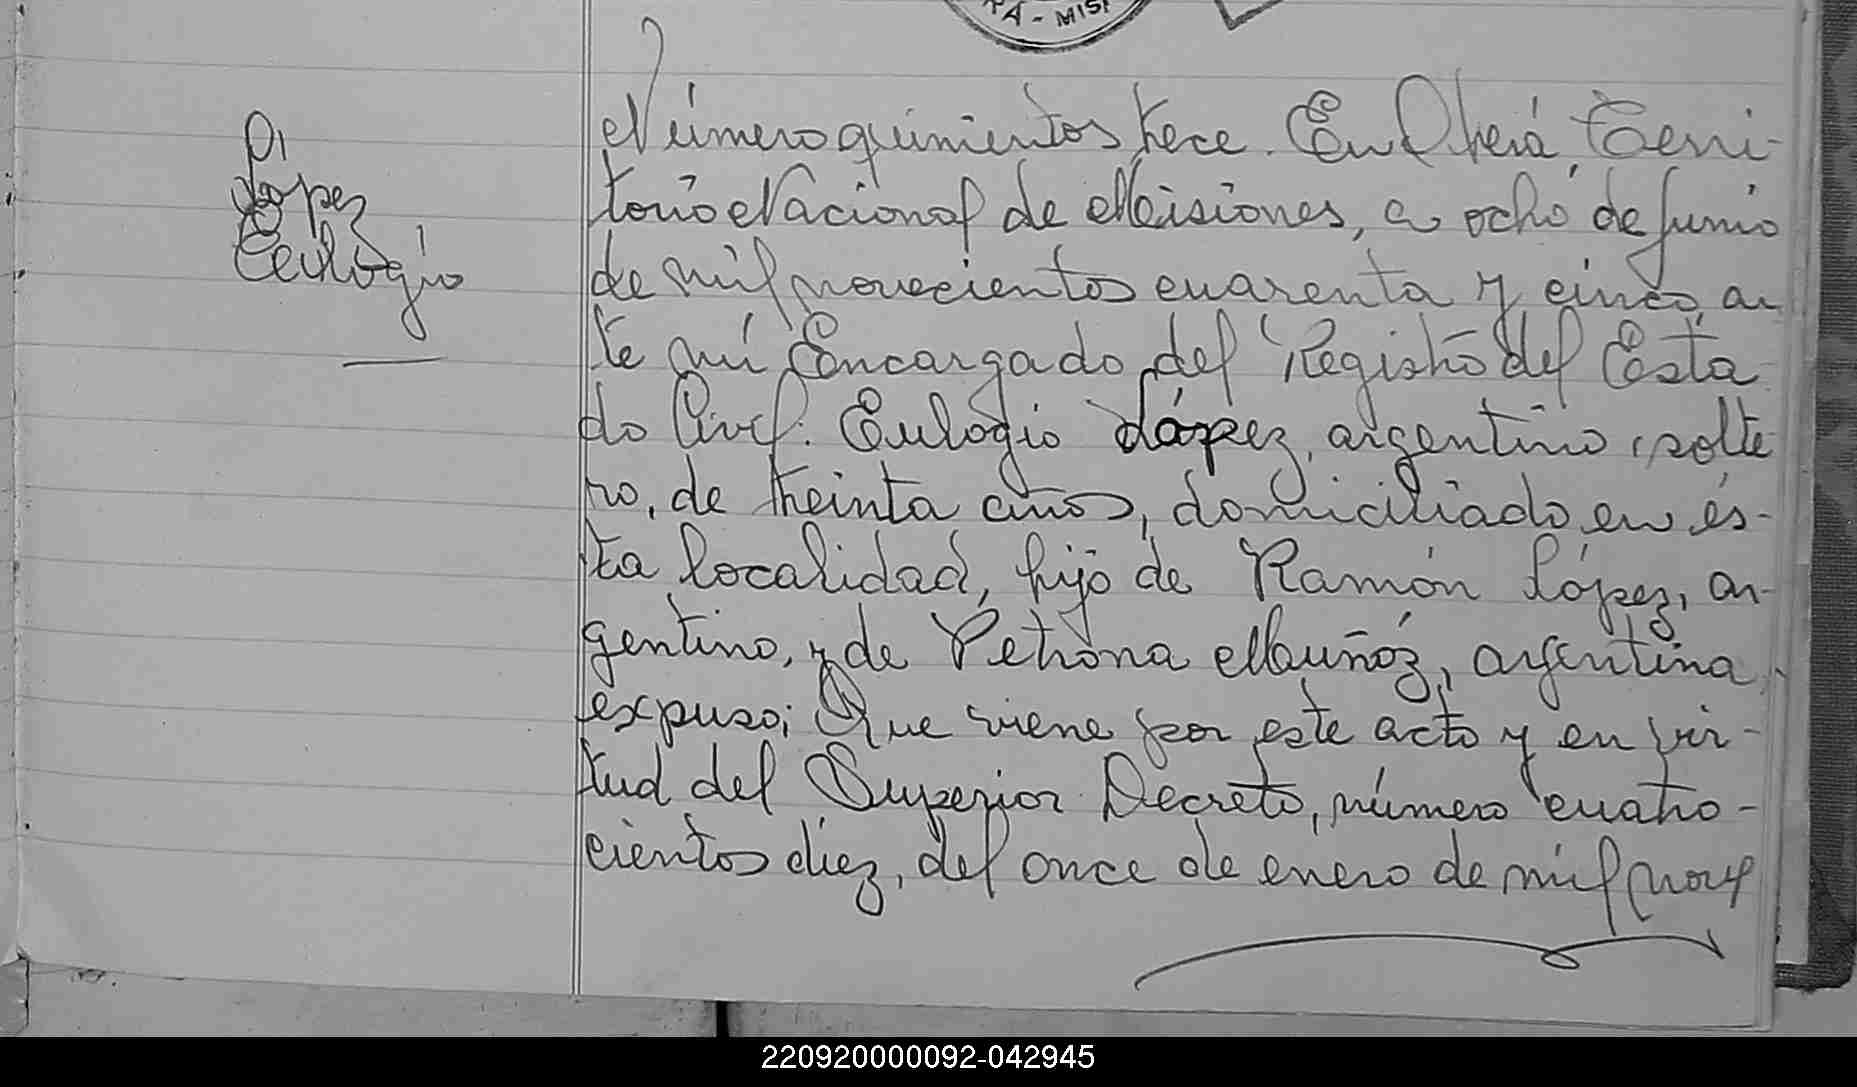 TA - MISI
D1
López
Eulogio
Número quinientos trece. En Oberá, Terri-
torio Nacional de Misiones, a ocho de Junio
de mil novecientos cuarenta y cinco, an
te mí Encargado del Registro del Esta
do Civil: Eulogio López, argentino, solte
ro, de treinta años, domiciliado en és-
ta localidad, hijo de Ramón López, ar-
gentino, y de Petrona Muñóz, argentina
expuso; Que viene por este acto y en vir-
tud del Superior Decreto, número cuatro-
cientos diez, del once de enero de mil nove
220920000092-042945